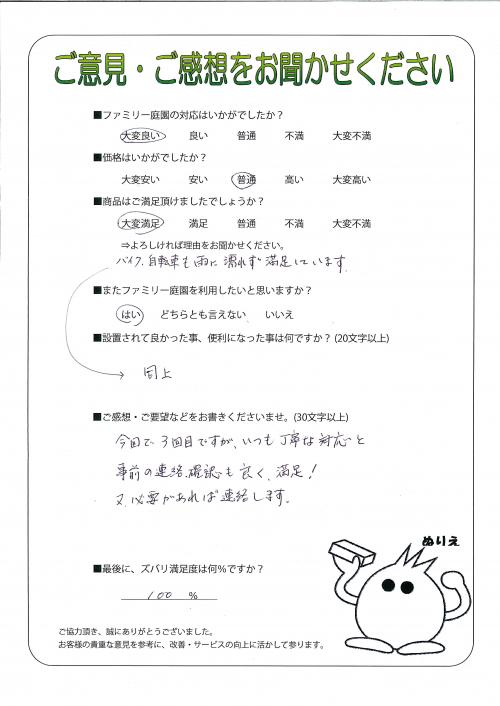 ご意見・ご感想をお聞かせください
■ファミリー庭園の対応はいかがでしたか？
大変良い 良い 普通 不満 大変不満
■価格はいかがでしたか？
大変安い 安い 普通 高い 大変高い
■商品はご満足頂けましたでしょうか？
大変満足 満足 普通 不満 大変不満
⇒よろしければ理由をお聞かせください。
バイク、自転車も雨に濡れず満足しています。
■またファミリー庭園を利用したいと思いますか？
はい どちらとも言えない いいえ
■設置されて良かった事、便利になった事は何ですか？(20文字以上)
同上
■ご感想・ご要望などをお書きくださいませ。(30文字以上)
今回で3回目ですが、いつも丁寧な対応と
事前の連絡、確認も良く、満足！
又、必要があれば連絡します。
ぬりえ
■最後に、ズバリ満足度は何％ですか？
100 %
ご協力頂き、誠にありがとうございました。
お客様の貴重な意見を参考に、改善・サービスの向上に活かして参ります。